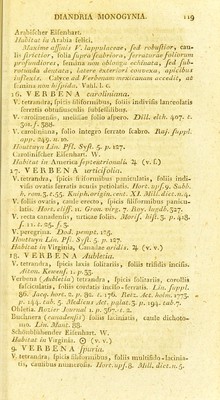 DIANDRIA MONOGYNIA. 119
Arabischer Eisenhart.
Habitat in Arabia felici.
Maxime affinis V. lappulaceae, sed robustior, cau-
lis strictior, folia supra scabriora, serraturae foliorum
profundiores, semina non oblongo echinata, sed sub-
rotunda dentata, latere exteriori convexa, apicibus
inflexis. Calyce ad Verbenam mexicanam accedit, at
semina non hispida. Vahl. l. c.
16. VERBENA caroliniana.
V. tetrandra, spicis filiformibus, foliis indivisis lanceolatis
serratis obtusiusculis subsessilibus.
V. caroliniensis, melissae folio aspero. Dill. elth. 407. t.
301. f. 388.
V. caroliniana, folio integro serrato scabro. Raj. suppl.
app. 249. n. 10.
Houttuyn Lin. Pfl. Syst. 5. p. 127.
Carolinischer Eisenhart. W.
Habitat in America septentrionali. ♃ (v. s.)
17. VERBENA urticifolia.
V. tetrandra, spicis filiformibus paniculatis, foliis indi-
visis ovatis serratis acutis petiolatis. Hort. ups. 9. Subb.
h. rom. 3. t. 55. Kniph. orig. in cent. XI. Mill. dict. n. 4.
V. foliis ovatis, caule erecto, spicis filiformibus panicu-
latis. Hort. cliff. 11. Gron. virg. 7. Roy. lugdb. 327.
V. recta canadensis, urticae folio. Moris. hist. 3. p. 418.
s. 11. t. 25. f. 3.
V. peregrina. Dod. pempt. 125.
Houttuyn Lin. Pfl. Syst. 5. p. 127.
Habitat in Virginia, Canadae aridis. ♃ (v. v.)
18. VERBENA Aubletia.
V. tetrandra, spicis laxis solitariis, foliis trifidis incisis.
Aiton. Kewens. 1. p. 33.
Verbena (Aubletia) tetrandra, spicis solitariis, corollis
fasciculatis, foliis cordatis inciso-serratis. Lin. suppl.
86. Jacq. hort. 2. p. 82. t. 176. Retz. Act. holm. 1773.
p. 144. tab. 5. Medicus Act. palat. 3. p. 194. tab. 7.
Obletia. Rozier Journal 1. p. 367. t. 2.
Buchnera (canadensis) foliis laciniatis, caule dichoto-
mo. Lin. Mant. 88.
Schönblühender Eisenhart. W.
Habitat in Virginia. ☉ (v. v.)
9. VERBENA spuria.
V. tetrandra, spicis filiformibus, foliis multifido-lacinia-
tis, caulibus numerosis. Hort. ups. 8. Mill. dict. n. 5.